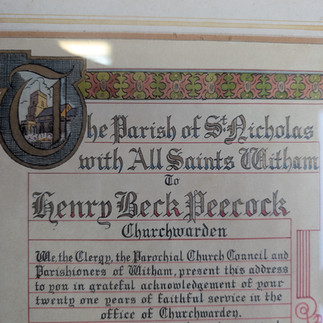 The Parish of St. Nicholas
with All Saints Witham
To
Henry Beck Peecock
Churchwarden
We, the Clergy, the Parochial Church Council and
Parishioners of Witham, present this address
to you in grateful acknowledgement of your
twenty one years of faithful service in the
office of Churchwarden.